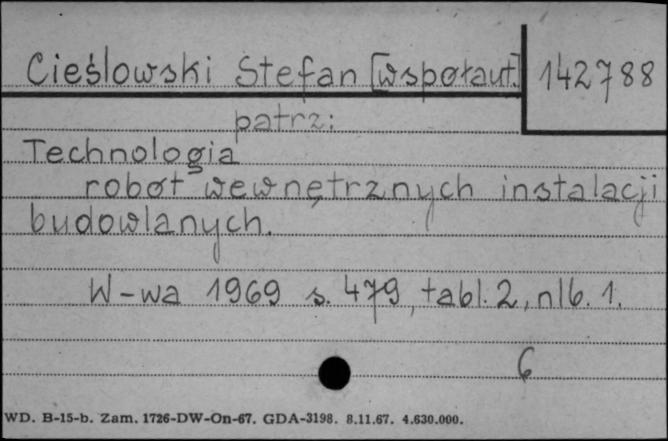 Cieślowski Stefan [współaut.] 142788
patrz:
Technologia
robót wewnętrznych instalacji
budowlanych.
W-wa 1969 s. 479, tabl. 2, nlb. 1.
6
WD. B-15-b. Zam. 1726-DW-On-67. GDA-3198. 8.11.67. 4.630.000.